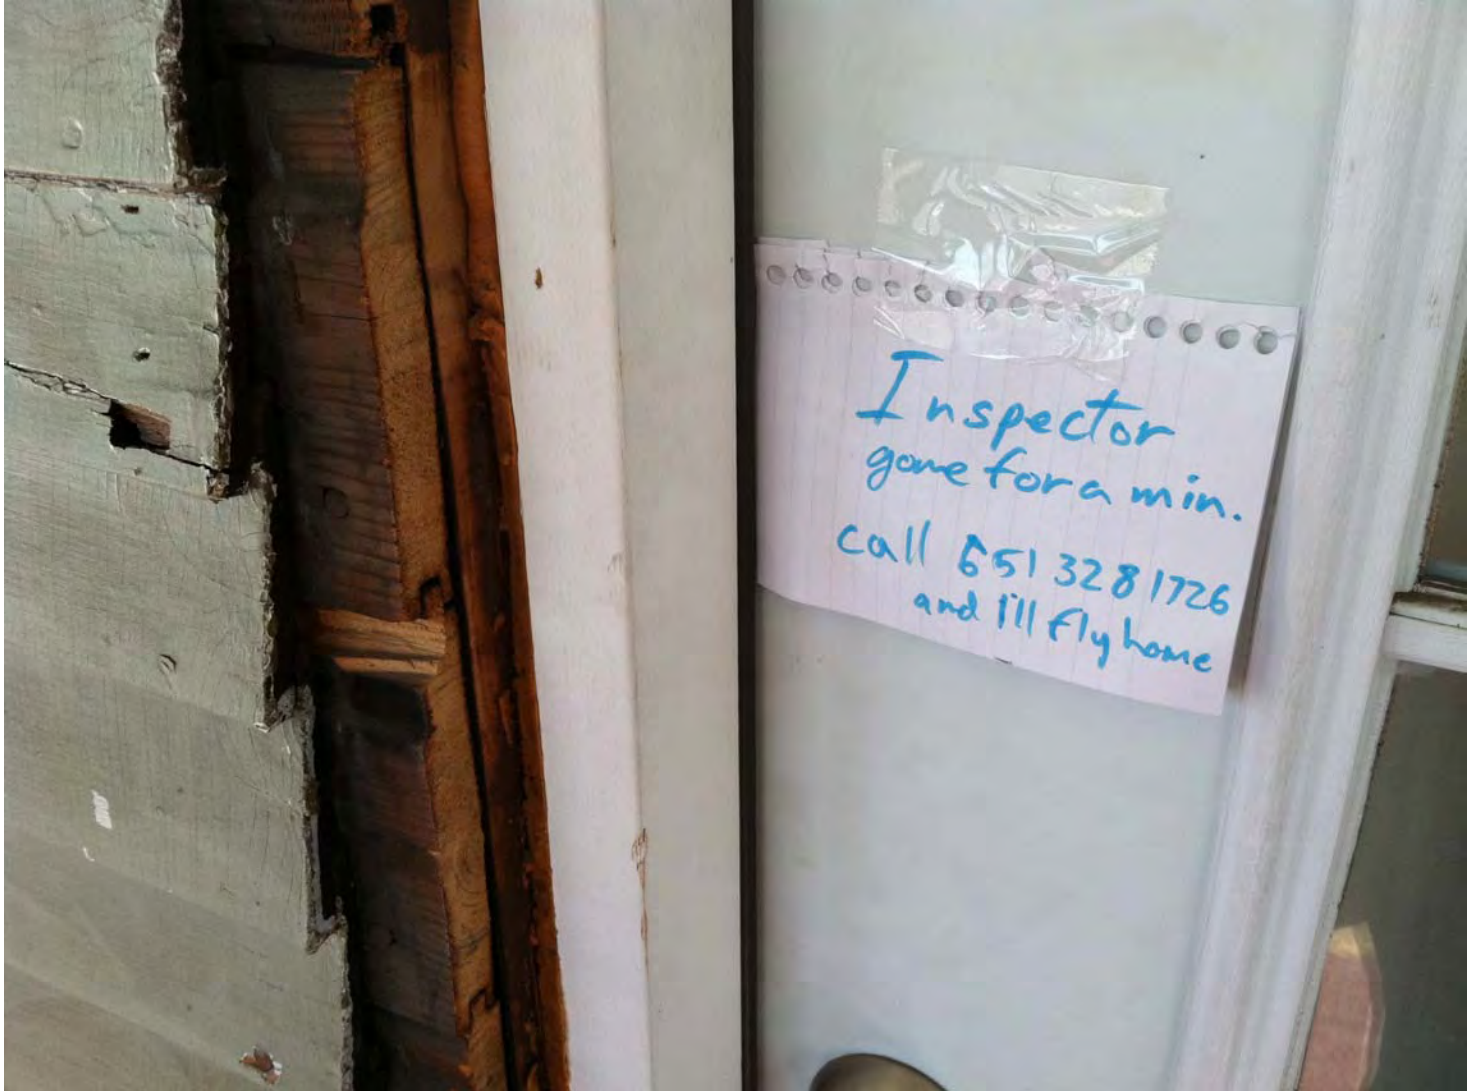 Inspector
gone for a min.
call 651 328 1726
and I'll fly home